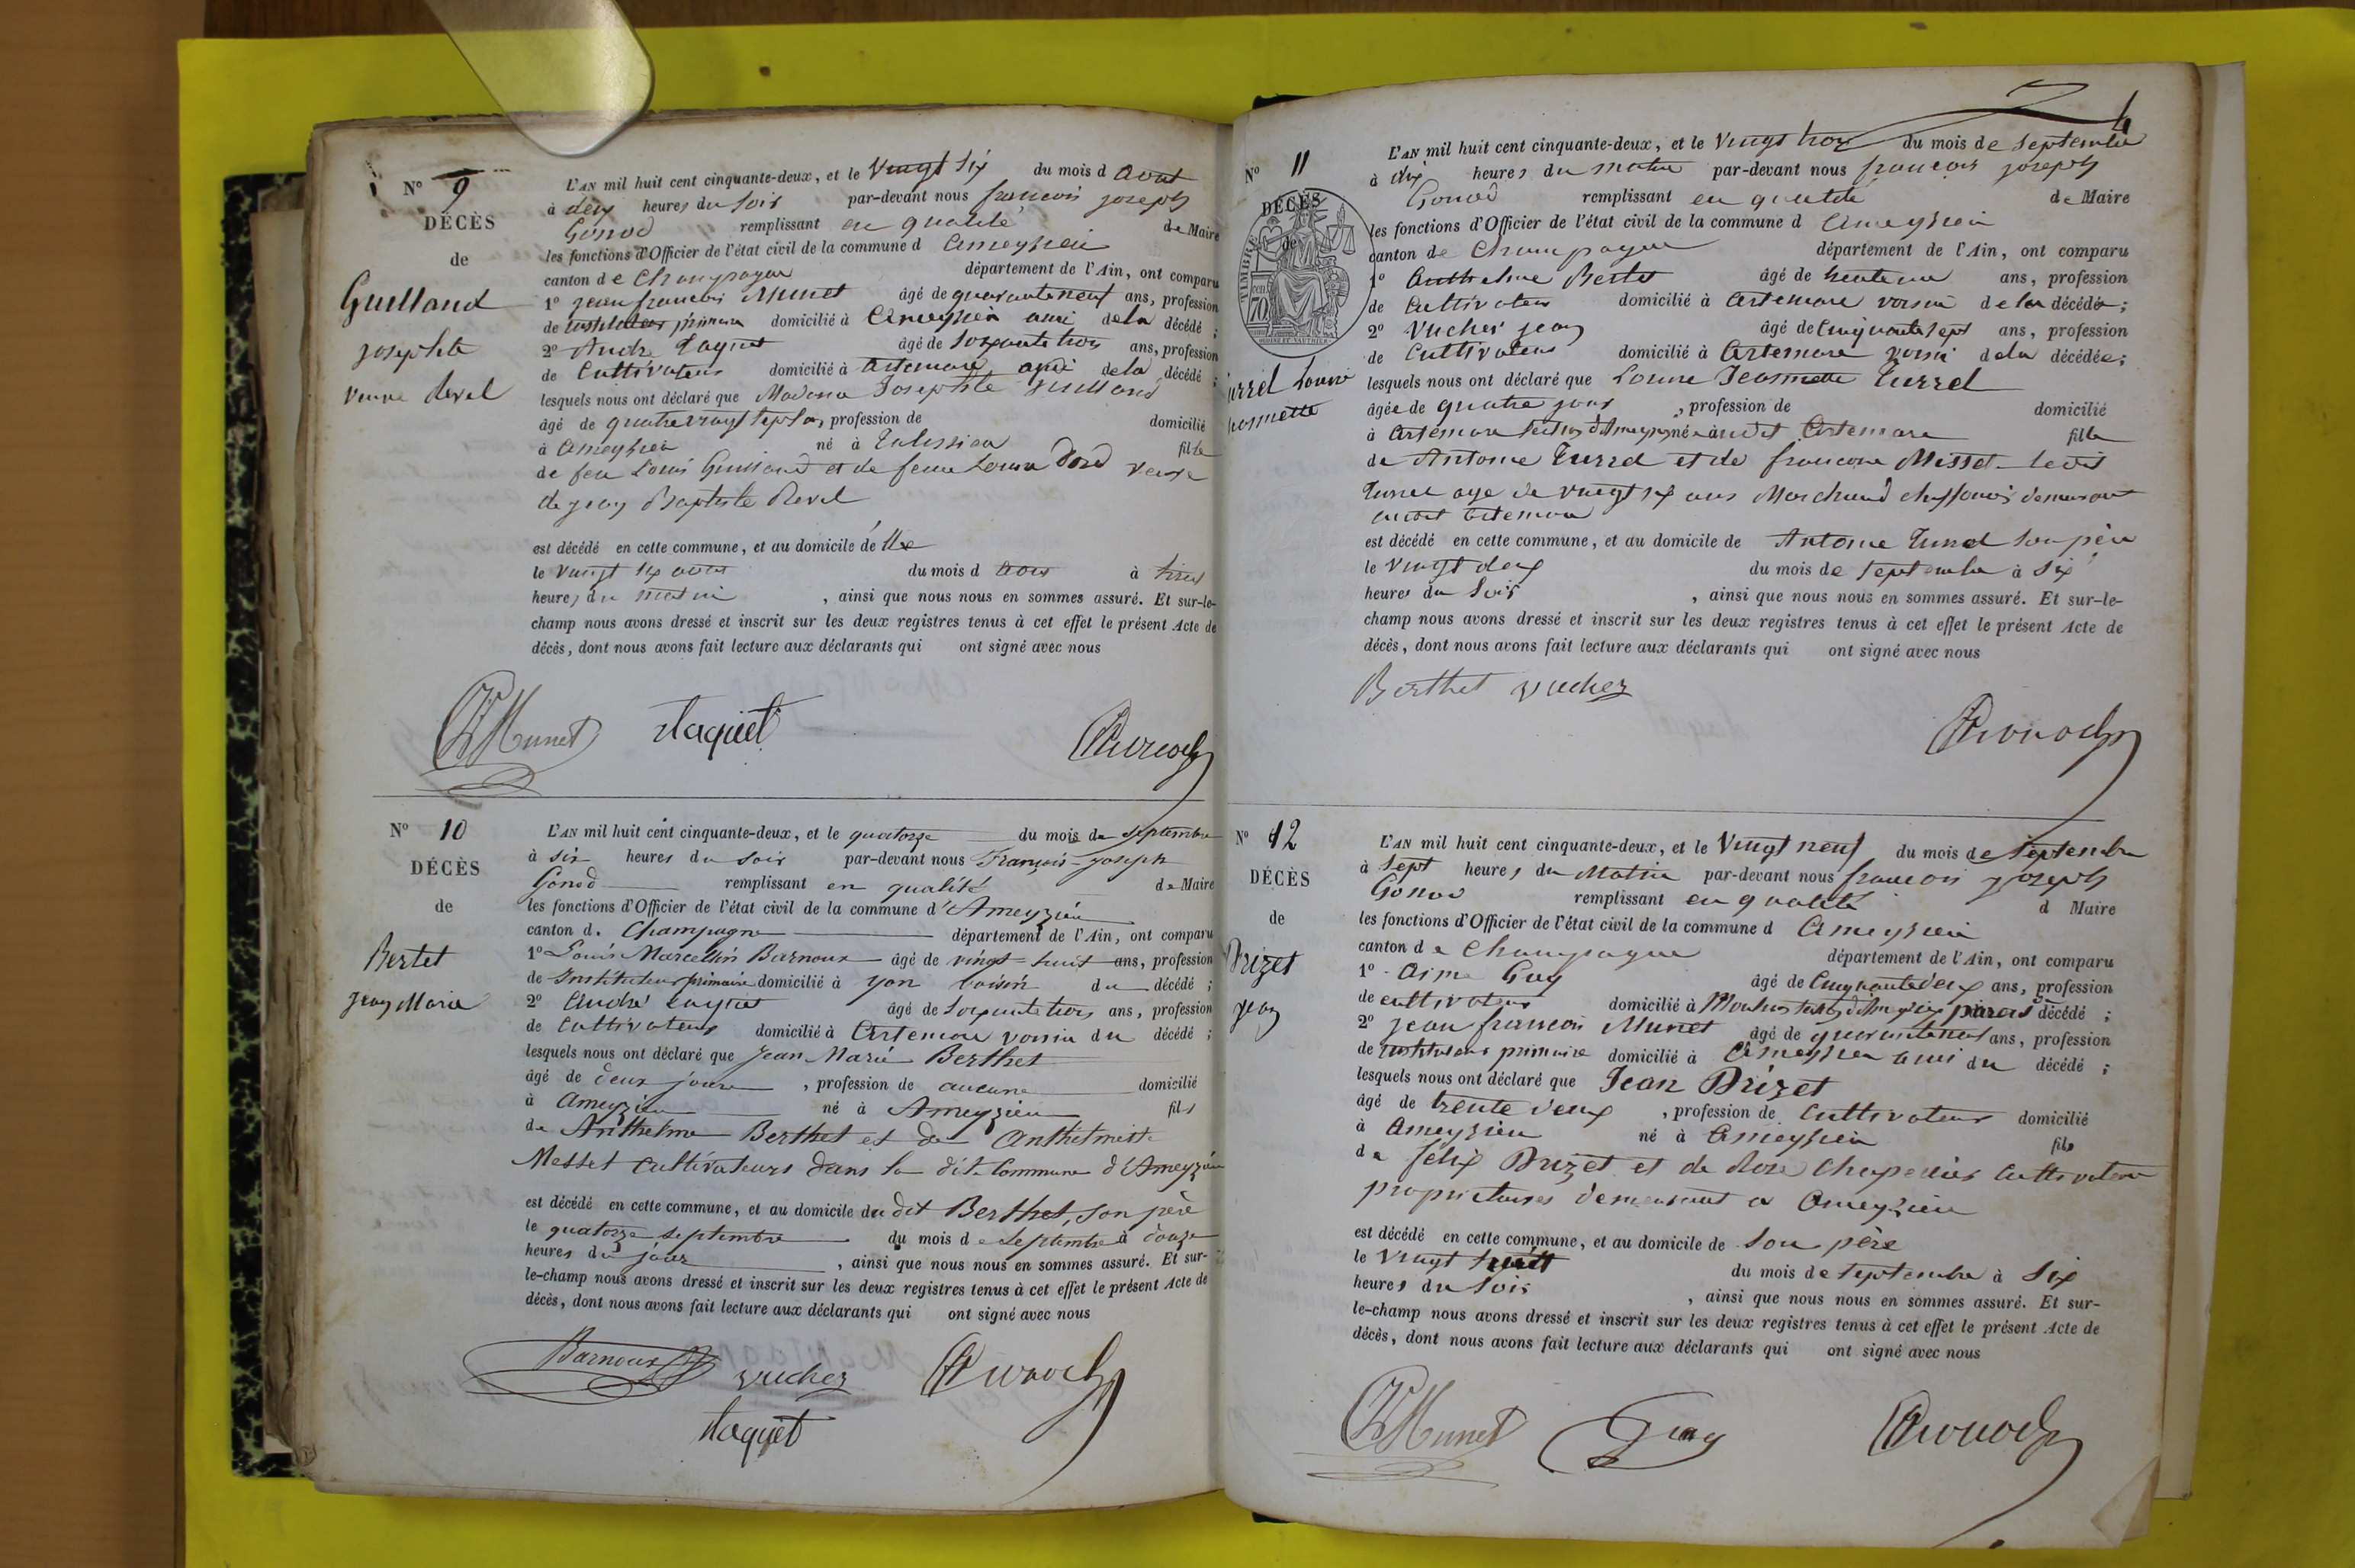 N° 9
DÉCÈS
de
Guilland
josephte
veuve Revel
L'AN mil huit cent cinquante-deux, et le Vingt six du mois d août
à deux heures du soir par-devant nous françois joseph
Gonod remplissant en qualité de Maire
les fonctions d'Officier de l'état civil de la commune d Ameyzieu
canton de Champagne département de l'Ain, ont comparu
1° jean françois Munet âgé de quarante neuf ans, profession
de instituteur primaire domicilié à Ameyzieu ami de la décédé ;
2° André Laquet âgé de soixante trois ans, profession
de Cultivateur domicilié à Artemare ami de la décédé ;
lesquels nous ont déclaré que Madame Josephte Guilland
âgé de quatre vingt sept ans, profession de domicilié
à Ameyzieu né à fille
de feu Louis Guilland et de feue Louise veuve
de jean Baptiste Revel
est décédé en cette commune, et au domicile de
le vingt six août du mois d août à
heures du matin , ainsi que nous nous en sommes assuré. Et sur-le-
champ nous avons dressé et inscrit sur les deux registres tenus à cet effet le présent Acte de
décès, dont nous avons fait lecture aux déclarants qui ont signé avec nous
Munet Laquet Gonod
N° 10
DÉCÈS
de
Bertet
jean Marie
L'AN mil huit cent cinquante-deux, et le quatorze du mois de septembre
à six heures du soir par-devant nous François-joseph
Gonod remplissant en qualité de Maire
les fonctions d'Officier de l'état civil de la commune d'Ameyzieu
canton d. Champagne département de l'Ain, ont comparu
1° Louis Marcellin Barnoux âgé de vingt-huit ans, profession
de Instituteur primaire domicilié à yon voisin du décédé ;
2° André Laquet âgé de soixante trois ans, profession
de Cultivateur domicilié à Artemare voisin du décédé ;
lesquels nous ont déclaré que Jean Marie Berthet
âgé de deux jours , profession de aucune domicilié
à Ameyzieu né à Ameyzieu fils
de Anthelme Berthet et de Anthelmette
Messet cultivateurs dans la dite Commune d'Ameyzieu
est décédé en cette commune, et au domicile du dit Berthet, son père
le quatorze septembre du mois de septembre à douze
heures du jour , ainsi que nous nous en sommes assuré. Et sur-
le-champ nous avons dressé et inscrit sur les deux registres tenus à cet effet le présent Acte de
décès, dont nous avons fait lecture aux déclarants qui ont signé avec nous
Barnoux Vucher Gonod
Laquet
4
N° 11
DÉCÈS
de
TIMBRE
70
Turrel Louise
Jeosmette
L'AN mil huit cent cinquante-deux, et le Vingt trois du mois de septembre
à dix heures du matin par-devant nous françois joseph
Gonod remplissant en qualité de Maire
les fonctions d'Officier de l'état civil de la commune d Ameyzieu
canton de Champagne département de l'Ain, ont comparu
1° Anthelme Bertet âgé de trente un ans, profession
de Cultivateur domicilié à Artemare voisin de la décédée ;
2° Vucher jean âgé de cinquante sept ans, profession
de Cultivateur domicilié à Artemare voisin de la décédée ;
lesquels nous ont déclaré que Louise Jeosmette Turrel
âgée de quatre jours , profession de domicilié
à Artemare né audit Artemare fille
de Antoine Turrel et de françoise Misset ledit
Turrel agé de vingt six ans Marchand demeurant
audit Artemare
est décédé en cette commune, et au domicile de Antoine Turrel son père
le vingt deux du mois de septembre à six
heures du soir , ainsi que nous nous en sommes assuré. Et sur-le-
champ nous avons dressé et inscrit sur les deux registres tenus à cet effet le présent Acte de
décès, dont nous avons fait lecture aux déclarants qui ont signé avec nous
Berthet Vucher
Gonod
N° 12
DÉCÈS
de
Drizet
jean
L'AN mil huit cent cinquante-deux, et le Vingt neuf du mois de septembre
à sept heures du Matin par-devant nous françois joseph
Gonod remplissant en qualité d Maire
les fonctions d'Officier de l'état civil de la commune d Ameyzieu
canton de Champagne département de l'Ain, ont comparu
1° Aimé Guy âgé de Cinquante deux ans, profession
de cultivateur domicilié à décédé ;
2° jean françois Munet âgé de quarante neuf ans, profession
de instituteur primaire domicilié à Ameyzieu ami du décédé ;
lesquels nous ont déclaré que Jean Drizet
âgé de trente deux , profession de Cultivateur domicilié
à Ameyzieu né à Ameyzieu fils
de félix Drizet et de Rose cultivateurs
propriétaires demeurant a Ameyzieu
est décédé en cette commune, et au domicile de son père
le vingt huit du mois de septembre à six
heures du soir , ainsi que nous nous en sommes assuré. Et sur-
le-champ nous avons dressé et inscrit sur les deux registres tenus à cet effet le présent Acte de
décès, dont nous avons fait lecture aux déclarants qui ont signé avec nous
Munet Guy Gonod